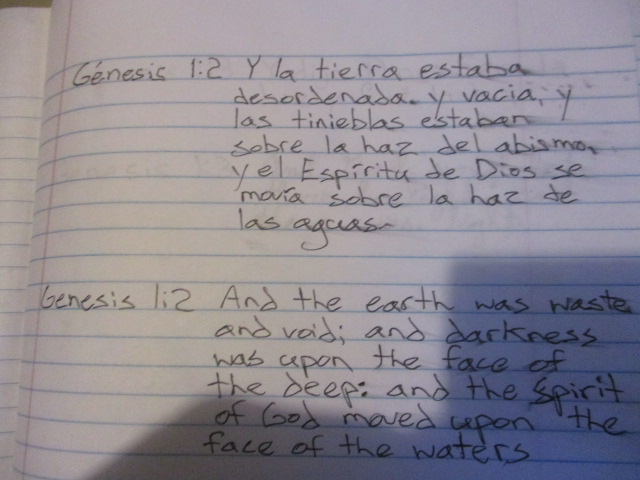 Génesis 1:2 Y la tierra estaba
desordenada. y vacia, y
las tinieblas estaban
sobre la haz del abismo,
y el Espíritu de Dios se
movía sobre la haz de
las aguas.
Genesis 1:2 And the earth was waste
and void; and darkness
was upon the face of
the deep: and the Spirit
of God moved upon the
face of the waters